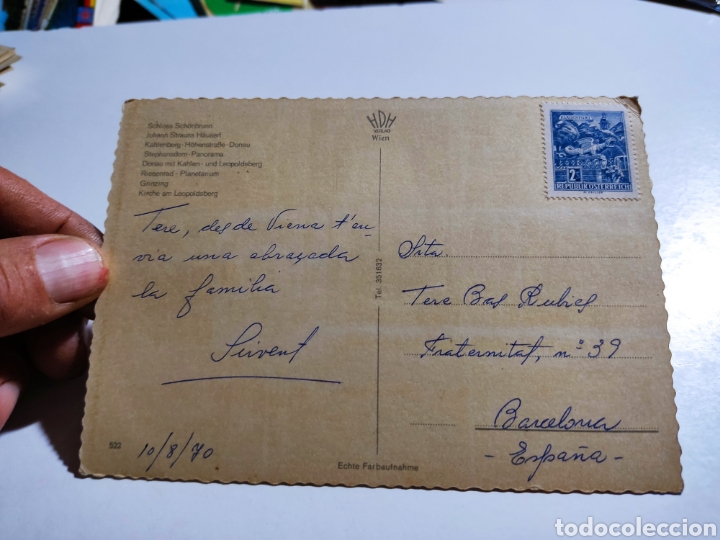 Schloss Schönbrunn
Johann Strauss Häuserl
Kahlenberg - Höhenstraße - Donau
Stephansdom - Panorama
Donau mit Kahlen- und Leopoldsberg
Riesenrad - Planetarium
Grinzing
Kirche am Leopoldsberg
HDH
VERLAG
Wien
2S
REPUBLIK ÖSTERREICH
Tere, desde Viena t'en-
via una abraçada
la familia
Sirvent
10/8/70
522
Tel. 351632
Echte Farbaufnahme
Srta.
Tere Bas Rubies
Fraternitat, nº 39
Barcelona
- España -
todocoleccion